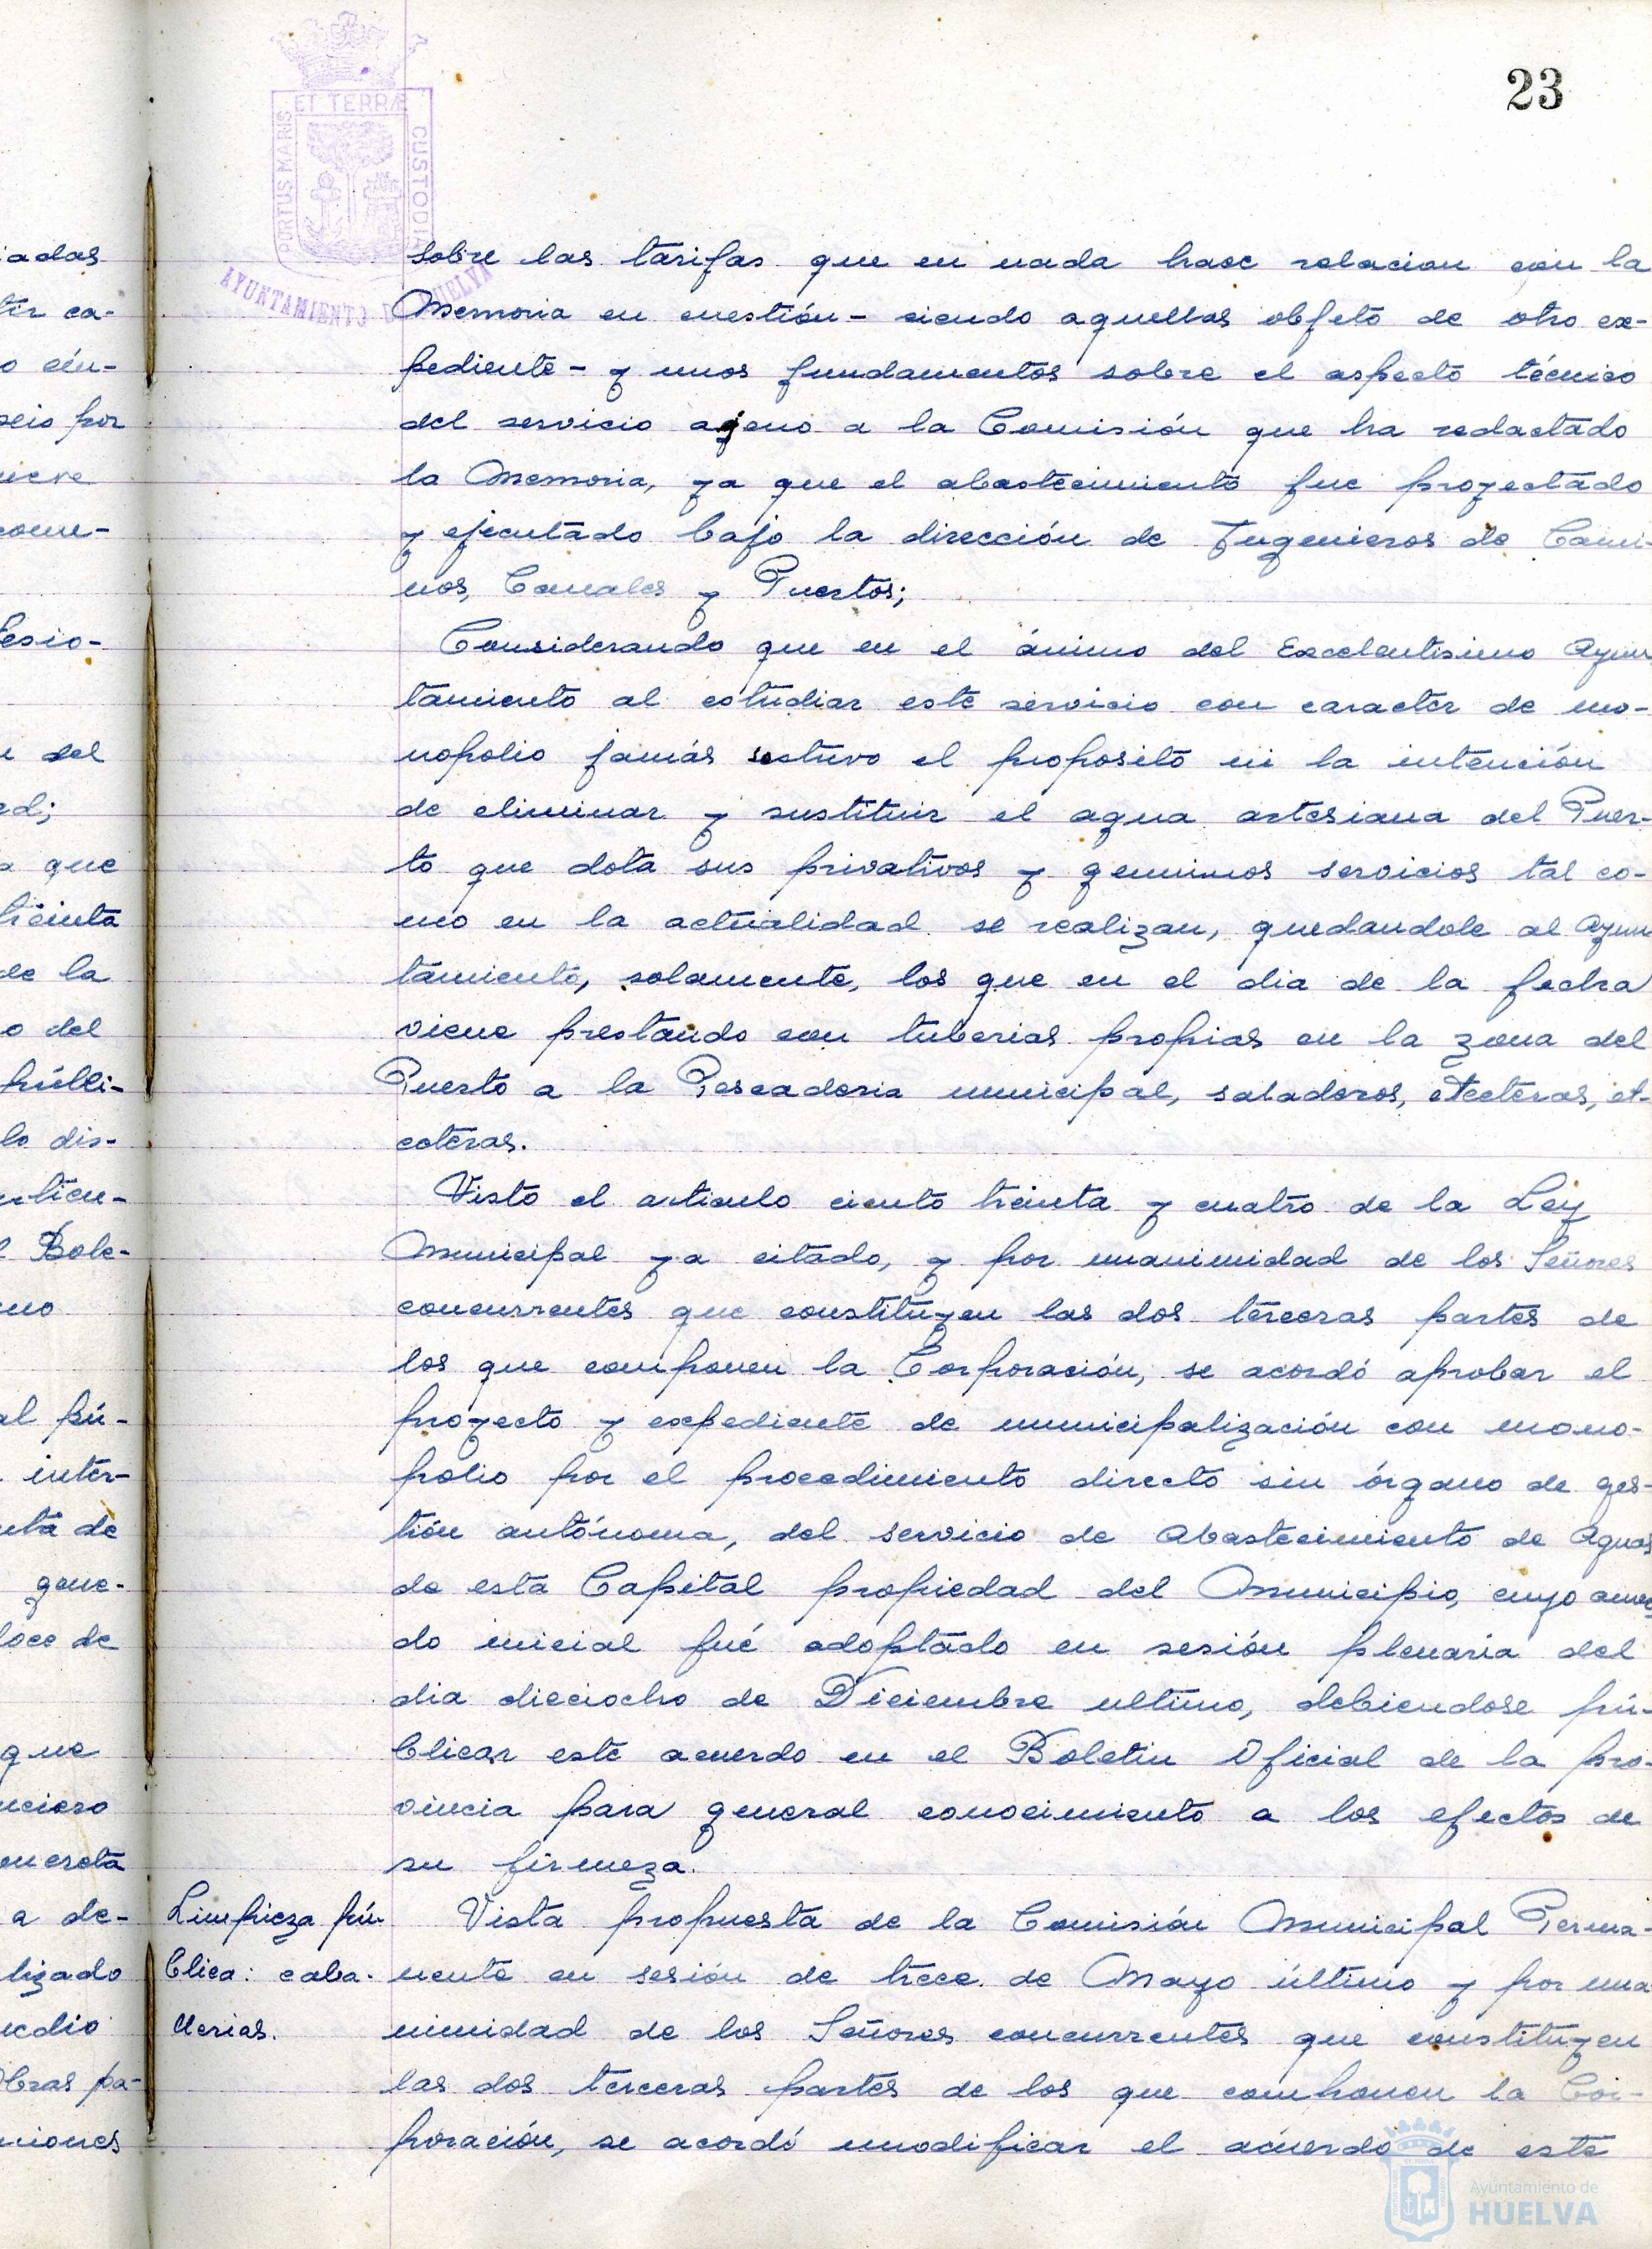 23
PORTUS MARIS ET TERRÆ CUSTODIA
AYUNTAMIENTO DE HUELVA
iadas
tir ca-
o cin-
seis por
ueve
come-
fesio-
n del
ed;
a que
treinta
de la
o del
públi-
lo dis-
rticu-
l Bole-
mo
al pú-
inter-
nta de
gene-
doce de
que
nciero
oncreta
a de-
lizado
medio
Obras pa-
niones
sobre las tarifas que en nada hace relacion con la
Memoria en cuestión - siendo aquellas objeto de otro ex-
pediente - y unos fundamentos sobre el aspecto técnico
del servicio ageno a la Comisión que ha redactado
la Memoria, ya que el abastecimiento fue proyectado
y ejecutado bajo la dirección de Ingenieros de Cami-
nos, Canales y Puertos;
Considerando que en el ánimo del Excelentisimo Ayun
tamiento al estudiar este servicio con caracter de mo-
nopolio jamás estuvo el proposito ni la intención
de eliminar y sustituir el agua artesiana del Puer-
to que dota sus privativos y genuinos servicios tal co-
mo en la actualidad se realizan, quedandole al Ayun
tamiento, solamente, los que en el dia de la fecha
viene prestando con tuberias propias en la zona del
Puerto a la Pescaderia municipal, saladeros, etceteras, et-
ceteras.
Visto el articulo ciento treinta y cuatro de la Ley
Municipal ya citado, y por unanimidad de los Señores
concurrentes que constituyen las dos terceras partes de
los que componen la Corporación, se acordó aprobar el
proyecto y expediente de municipalización con mono-
polio por el procedimiento directo sin órgano de ges-
tión autónoma, del servicio de Abastecimiento de Aguas
de esta Capital propiedad del Municipio, cuyo acuer
do inicial fué adoptado en sesión plenaria del
dia dieciocho de Diciembre ultimo, debiendose pú-
blicar este acuerdo en el Boletin Oficial de la pro-
vincia para general conocimiento a los efectos de
su firmeza.
Limpieza pú-
blica: caba-
llerias.
Vista propuesta de la Comisión Municipal Perma-
nente en sesión de trece de Mayo último y por una
nimidad de los Señores concurrentes que constituyen
las dos terceras partes de los que componen la Cor-
poración, se acordó modificar el acuerdo de este
Ayuntamiento de
HUELVA